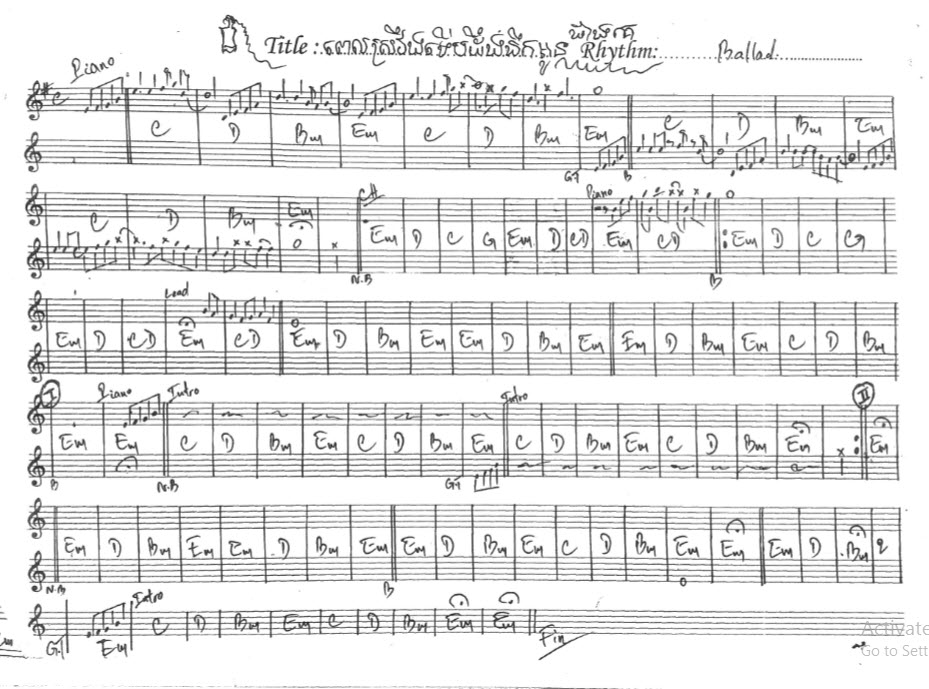 Title : Rhythm: Ballad
Piano
C D Bm Em C D Bm Em C D Bm Em
G7 B
C D Bm Em CH Piano
Em D C G Em D CD Em CD Em D C G
N.B B
Lead
Em D CD Em CD Em D Bm Em Em D Bm Em Em D Bm Em C D Bm
I Piano Intro Intro II
Em Em C D Bm Em C D Bm Em C D Bm Em C D Bm Em Em
B N.B G7
Em D Bm Em Em D Bm Em Em D Bm Em C D Bm Em Em Em D Bm
N.B B
Intro
Em C D Bm Em C D Bm Em Em Fin
Activate
Go to Sett